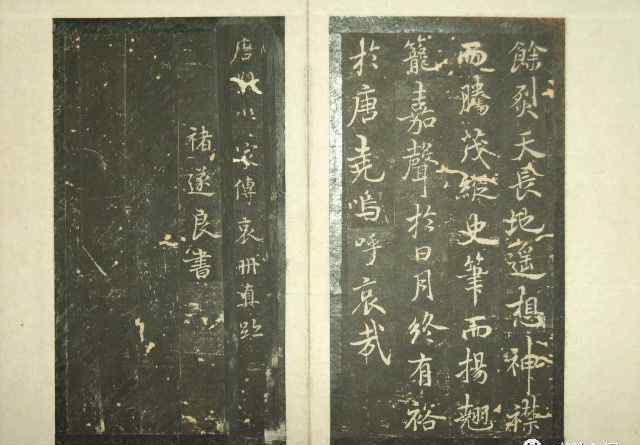 餘烈天長地遙想神襟
而騰茂縱史筆而揚翹
籠嘉聲於日月終有裕
於唐堯嗚呼哀哉
唐 家傳哀冊真跡
褚遂良書